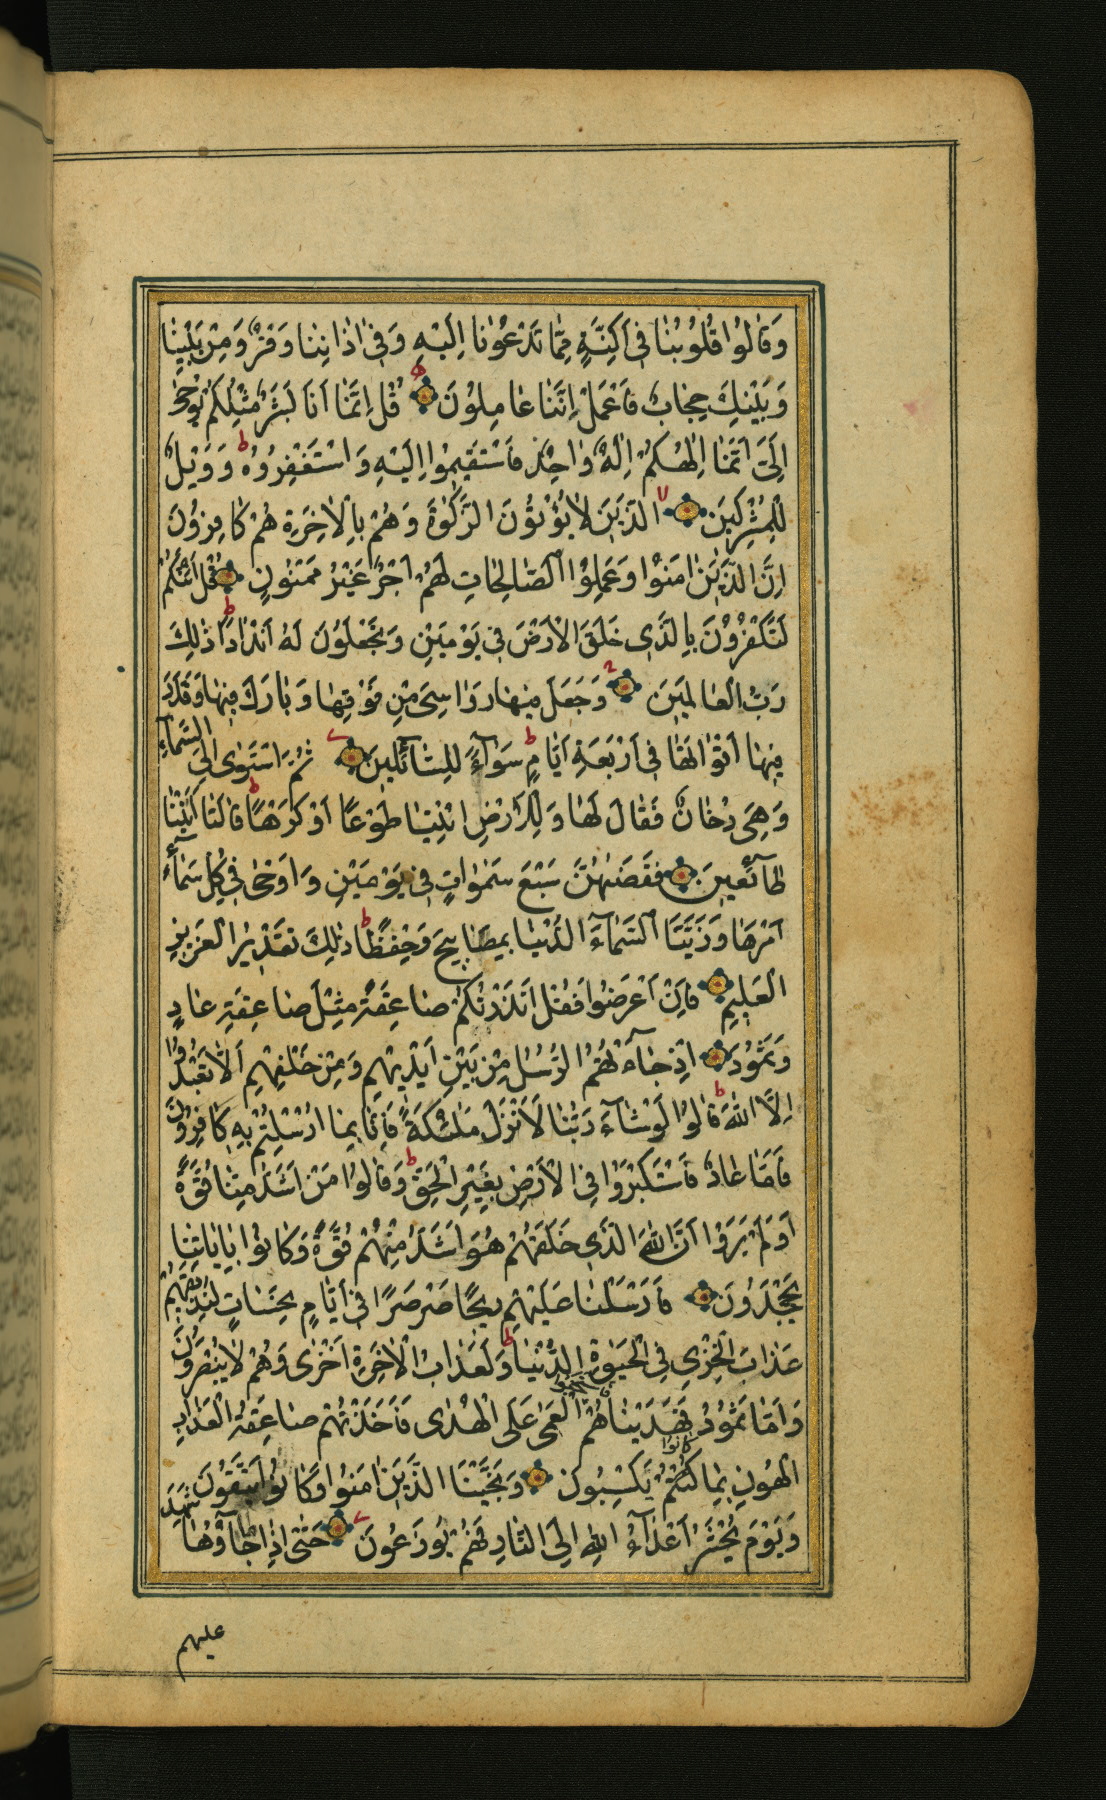 وَقٰالُوا قُلُوبُنٰا فِي اَكِنَّةٍ مِمّٰا تَدْعُوْنٰا اِلَيْهِ وَفِي اٰذٰانِنٰا وَقْرٌ وَمِنْ بَيْنِنٰا
وَبَيْنِكَ حِجٰابٌ فَاعْمَلْ اِنَّنٰا عٰامِلُوْنَ قُلْ اِنَّمٰا اَنَا بَشَرٌ مِثْلُكُمْ يُوحٰى
اِلَيَّ اَنَّمٰا اِلٰهُكُمْ اِلٰهٌ وٰاحِدٌ فَاسْتَقِيمُوا اِلَيْهِ وَاسْتَغْفِرُوُهُ ط وَوَيْلٌ
لِلْمُشْرِكِينَ لا الَّذِينَ لٰا يُؤْتُوُنَ الزَّكٰوةَ وَهُمْ بِالْاٰخِرَةِ هُمْ كٰافِرُوُنَ
اِنَّ الَّذِينَ اٰمَنُوْا وَعَمِلُوْا الصّٰالِحٰاتِ لَهُمْ اَجْرٌ غَيْرُ مَمْنُوْنٍ قُلْ اَئِنَّكُمْ
لَتَكْفُرُوْنَ بِالَّذِي خَلَقَ الْاَرْضَ فِي يَوْمَيْنِ وَتَجْعَلُوْنَ لَهُ اَنْدٰادًا ط ذٰلِكَ
رَبُّ الْعٰالَمِينَ وَجَعَلَ فِيهٰا رَوٰاسِيَ مِنْ فَوْقِهٰا وَبٰارَكَ فِيهٰا وَقَدَّرَ
فِيهٰا اَقْوٰاتَهٰا فِي اَرْبَعَةِ اَيّٰامٍ ط سَوٰآءً لِلسّٰآئِلِينَ ثُمَّ اسْتَوٰى اِلَى السَّمٰآءِ
وَهِيَ دُخٰانٌ فَقٰالَ لَهٰا وَلِلْاَرْضِ ائْتِيٰا طَوْعًا اَوْ كَرْهًا ط قٰالَتٰا اَتَيْنٰا
طٰآئِعِينَ فَقَضٰىهُنَّ سَبْعَ سَمٰوٰاتٍ فِي يَوْمَيْنِ وَاَوْحٰى فِي كُلِّ سَمٰآءٍ
اَمْرَهٰا وَزَيَّنَّا السَّمٰآءَ الدُّنْيٰا بِمَصٰابِيحَ وَحِفْظًا ط ذٰلِكَ تَقْدِيرُ الْعَزِيزِ
الْعَلِيمِ فَاِنْ اَعْرَضُوْا فَقُلْ اَنْذَرْتُكُمْ صٰاعِقَةً مِثْلَ صٰاعِقَةِ عٰادٍ
وَثَمُوُدَ اِذْ جٰآءَتْهُمُ الرُّسُلُ مِنْ بَيْنِ اَيْدِيهِمْ وَمِنْ خَلْفِهِمْ اَلّٰا تَعْبُدُوُا
اِلَّا اللّٰهَ ط قٰالُوُا لَوْ شٰآءَ رَبُّنٰا لَاَنْزَلَ مَلٰئِكَةً فَاِنّٰا بِمٰا اُرْسِلْتُمْ بِهِ كٰافِرُوُنَ
فَاَمّٰا عٰادٌ فَاسْتَكْبَرُوْا فِي الْاَرْضِ بِغَيْرِ الْحَقِّ ط وَقٰالُوُا مَنْ اَشَدُّ مِنّٰا قُوَّةً
اَوَلَمْ يَرَوْا اَنَّ اللّٰهَ الَّذِي خَلَقَهُمْ هُوَ اَشَدُّ مِنْهُمْ قُوَّةً وَكٰانُوُا بِاٰيٰاتِنٰا
يَجْحَدُوُنَ فَاَرْسَلْنٰا عَلَيْهِمْ رِيحًا صَرْصَرًا فِي اَيّٰامٍ نَحِسٰاتٍ لِنُذِيقَهُمْ
عَذٰابَ الْخِزْيِ فِي الْحَيٰوةِ الدُّنْيٰا ط وَلَعَذٰابُ الْاٰخِرَةِ اَخْزٰى وَهُمْ لٰا يُنْصَرُوُنَ
وَاَمّٰا ثَمُوُدُ فَهَدَيْنٰاهُمْ فَاسْتَحَبُّوا الْعَمٰى عَلَى الْهُدٰى فَاَخَذَتْهُمْ صٰاعِقَةُ الْعَذٰابِ
الْهُوْنِ بِمٰا كُنْتُمْ كانوا يَكْسِبُوُنَ وَنَجَّيْنَا الَّذِينَ اٰمَنُوُا وَكٰانُوُا يَتَّقُوُنَ
وَيَوْمَ يُحْشَرُ اَعْدٰآءُ اللّٰهِ اِلَى النّٰارِ فَهُمْ يُوزَعُوُنَ حَتّٰى اِذٰا مٰا جٰآؤُهٰا شَهِدَ
عليهم